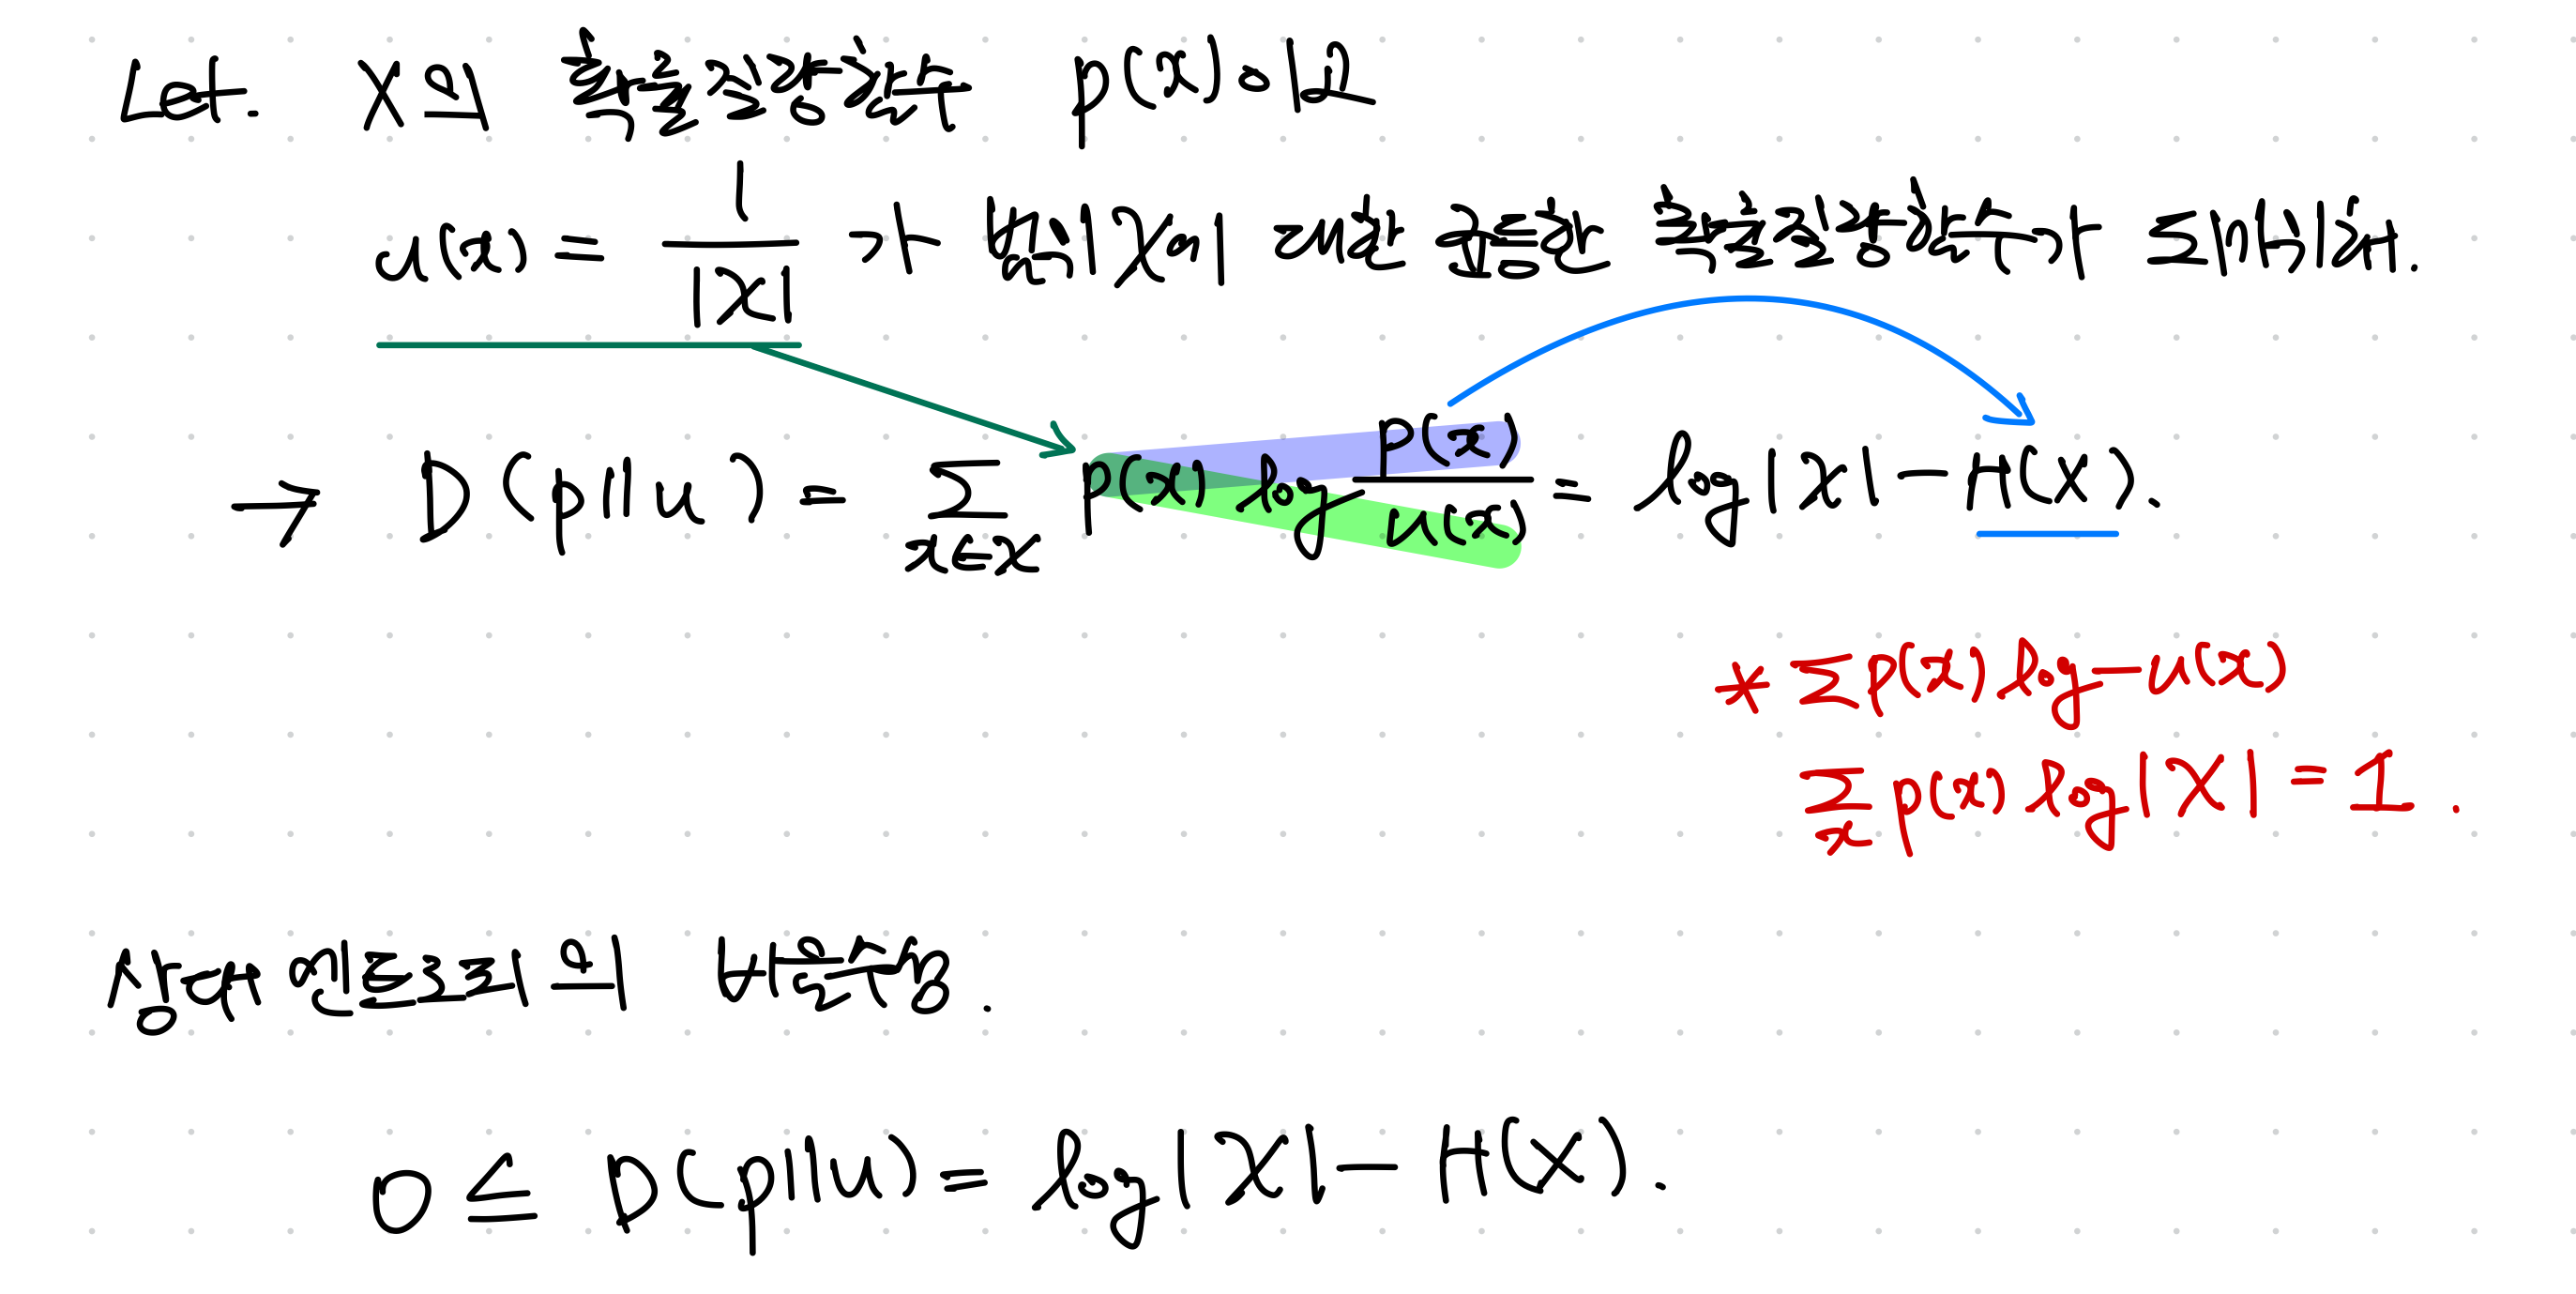 Let. X의 확률질량함수 p(x)이고
u(x) = 1/|X| 가 범위 X에 대한 균등한 확률질량함수가
→ D(p||u) = Σ_{x∈X} p(x) log p(x)/u(x) = log|X| - H(X).
* Σp(x) log-u(x)
Σ_x p(x) log|X| = 1.
상대 엔트로피의 비음수성.
0 ≤ D(p||u) = log|X| - H(X).